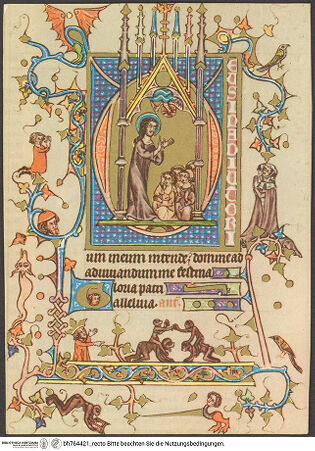 EUS IN ADIUTORI
um meum intende; domine ad
adiuvandum me festina
loria patri
alleluia. ant.
BIBLIOTHECA HERTZIANA
bh764421_recto Bitte beachten Sie die Nutzungsbedingungen.